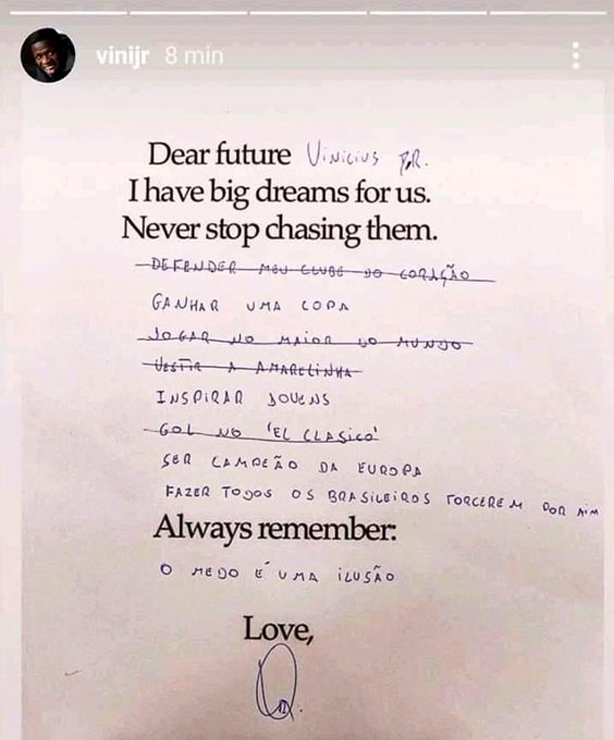 vinijr 8 min
Dear future Vinicius JR.
I have big dreams for us.
Never stop chasing them.
DEFENDER MEU CLUBE DO CORAÇÃO
GANHAR UMA COPA
JOGAR NO MAIOR DO MUNDO
VESTIR A AMARELINHA
INSPIRAR JOVENS
GOL NO 'EL CLASICO'
SER CAMPEÃO DA EUROPA
FAZER TODOS OS BRASILEIROS TORCEREM POR MIM
Always remember:
O MEDO É UMA ILUSÃO
Love,